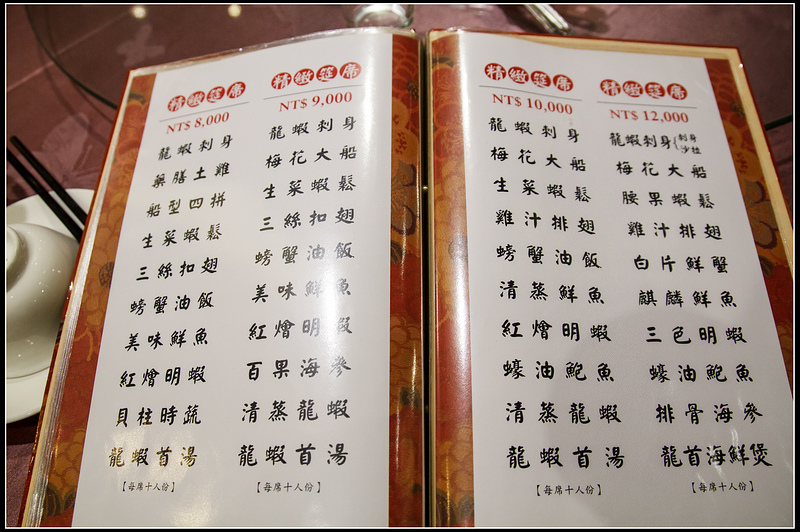 精緻筵席
NT$ 8,000
龍蝦刺身
藥膳土雞
船型四拼
生菜蝦鬆
三絲扣翅
螃蟹油飯
美味鮮魚
紅燴明蝦
貝柱時蔬
龍蝦首湯
【每席十人份】
精緻筵席
NT$ 9,000
龍蝦刺身
梅花大船
生菜蝦鬆
三絲扣翅
螃蟹油飯
美味鮮魚
紅燴明蝦
百果海參
清蒸龍蝦
龍蝦首湯
【每席十人份】
精緻筵席
NT$ 10,000
龍蝦刺身
梅花大船
生菜蝦鬆
雞汁排翅
螃蟹油飯
清蒸鮮魚
紅燴明蝦
蠔油鮑魚
清蒸龍蝦
龍蝦首湯
【每席十人份】
精緻筵席
NT$ 12,000
龍蝦刺身{刺身 沙拉
梅花大船
腰果蝦鬆
雞汁排翅
白片鮮蟹
麒麟鮮魚
三色明蝦
蠔油鮑魚
排骨海參
龍首海鮮煲
【每席十人份】